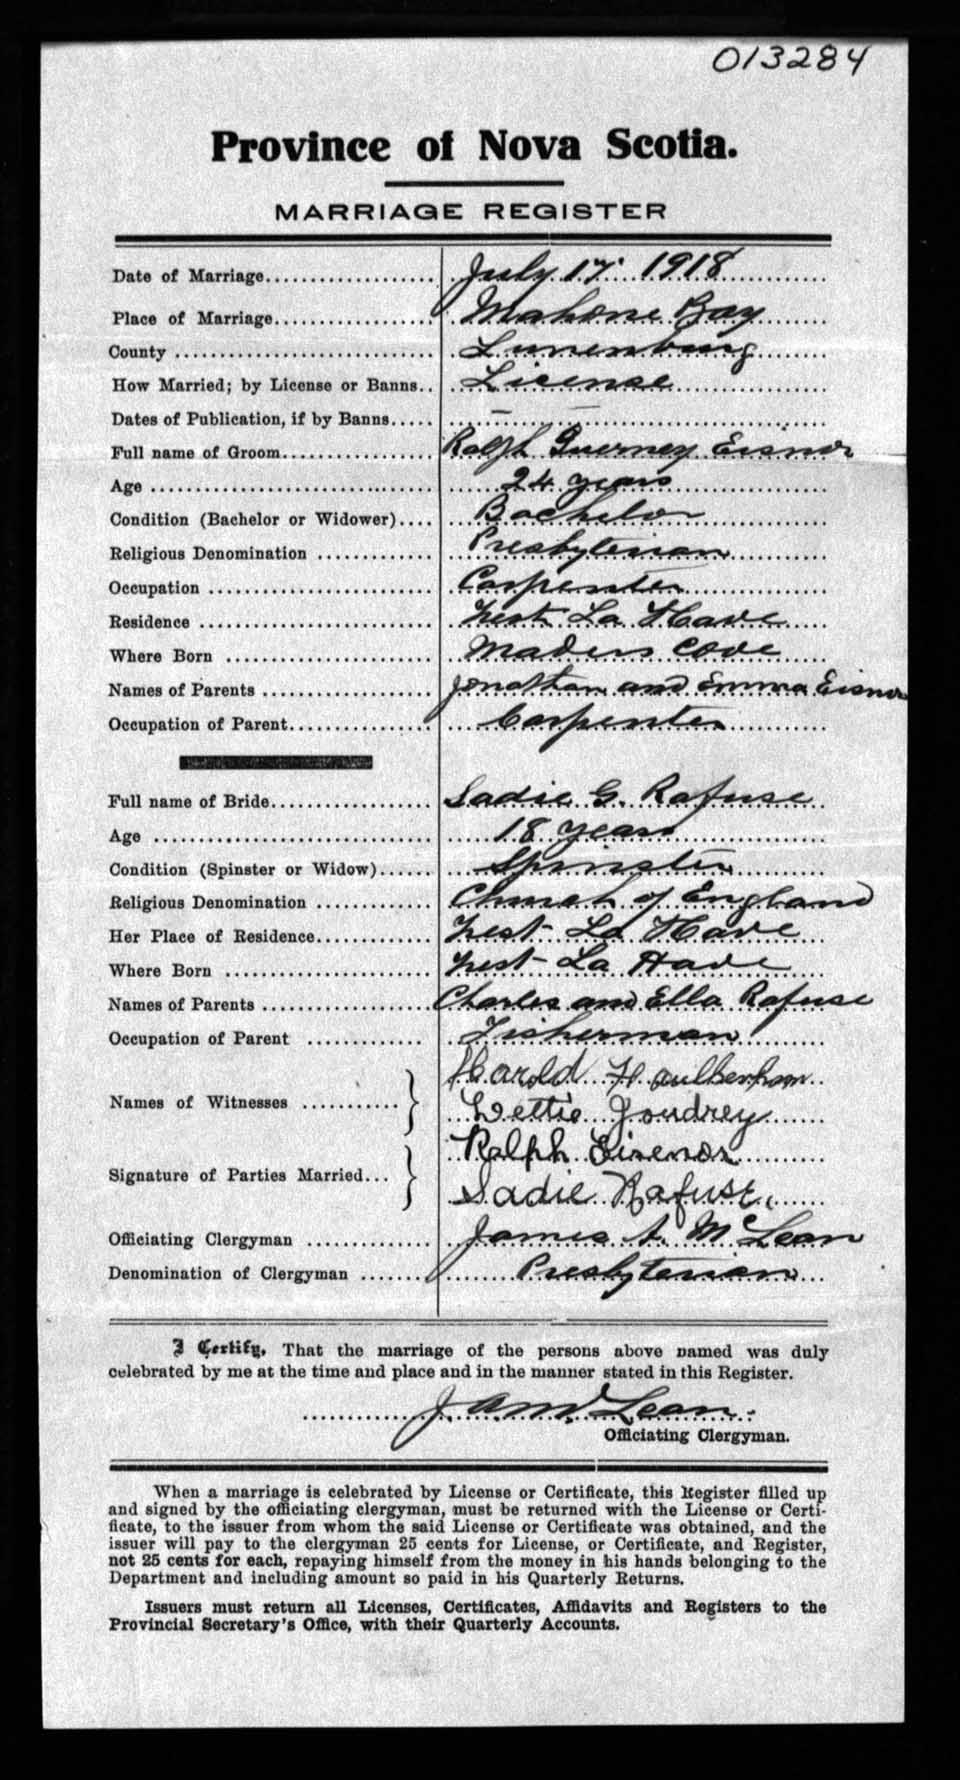 013284
Province of Nova Scotia.
MARRIAGE REGISTER
Date of Marriage.................. July 17. 1918
Place of Marriage................. Mahone Bay
County ............................. Lunenburg
How Married; by License or Banns.. License
Dates of Publication, if by Banns..... – –
Full name of Groom................ Ralph Guerney Eisnor
Age ................................ 24 years
Condition (Bachelor or Widower).... Bachelor
Religious Denomination ............ Presbyterian
Occupation ........................ Carpenter
Residence ......................... West La Have
Where Born ....................... Maders Cove
Names of Parents .................. Jonathan and Emma Eisnor
Occupation of Parent............... Carpenter
Full name of Bride................. Sadie G. Rafuse
Age ............................... 18 years
Condition (Spinster or Widow)...... Spinster
Religious Denomination ............ Church of England
Her Place of Residence............. West La Have
Where Born ....................... West La Have
Names of Parents .................. Charles and Ella Rafuse
Occupation of Parent ............. Fisherman
Names of Witnesses ........... } Harold
Lettie Joudrey
Signature of Parties Married... } Ralph Eisenor
Sadie Rafuse
Officiating Clergyman ............. James A. McLean
Denomination of Clergyman ....... Presbyterian
I Certify, That the marriage of the persons above named was duly
celebrated by me at the time and place and in the manner stated in this Register.
J. A. McLean
Officiating Clergyman.
When a marriage is celebrated by License or Certificate, this Register filled up
and signed by the officiating clergyman, must be returned with the License or Certi-
ficate, to the issuer from whom the said License or Certificate was obtained, and the
issuer will pay to the clergyman 25 cents for License, or Certificate, and Register,
not 25 cents for each, repaying himself from the money in his hands belonging to the
Department and including amount so paid in his Quarterly Returns.
Issuers must return all Licenses, Certificates, Affidavits and Registers to the
Provincial Secretary's Office, with their Quarterly Accounts.